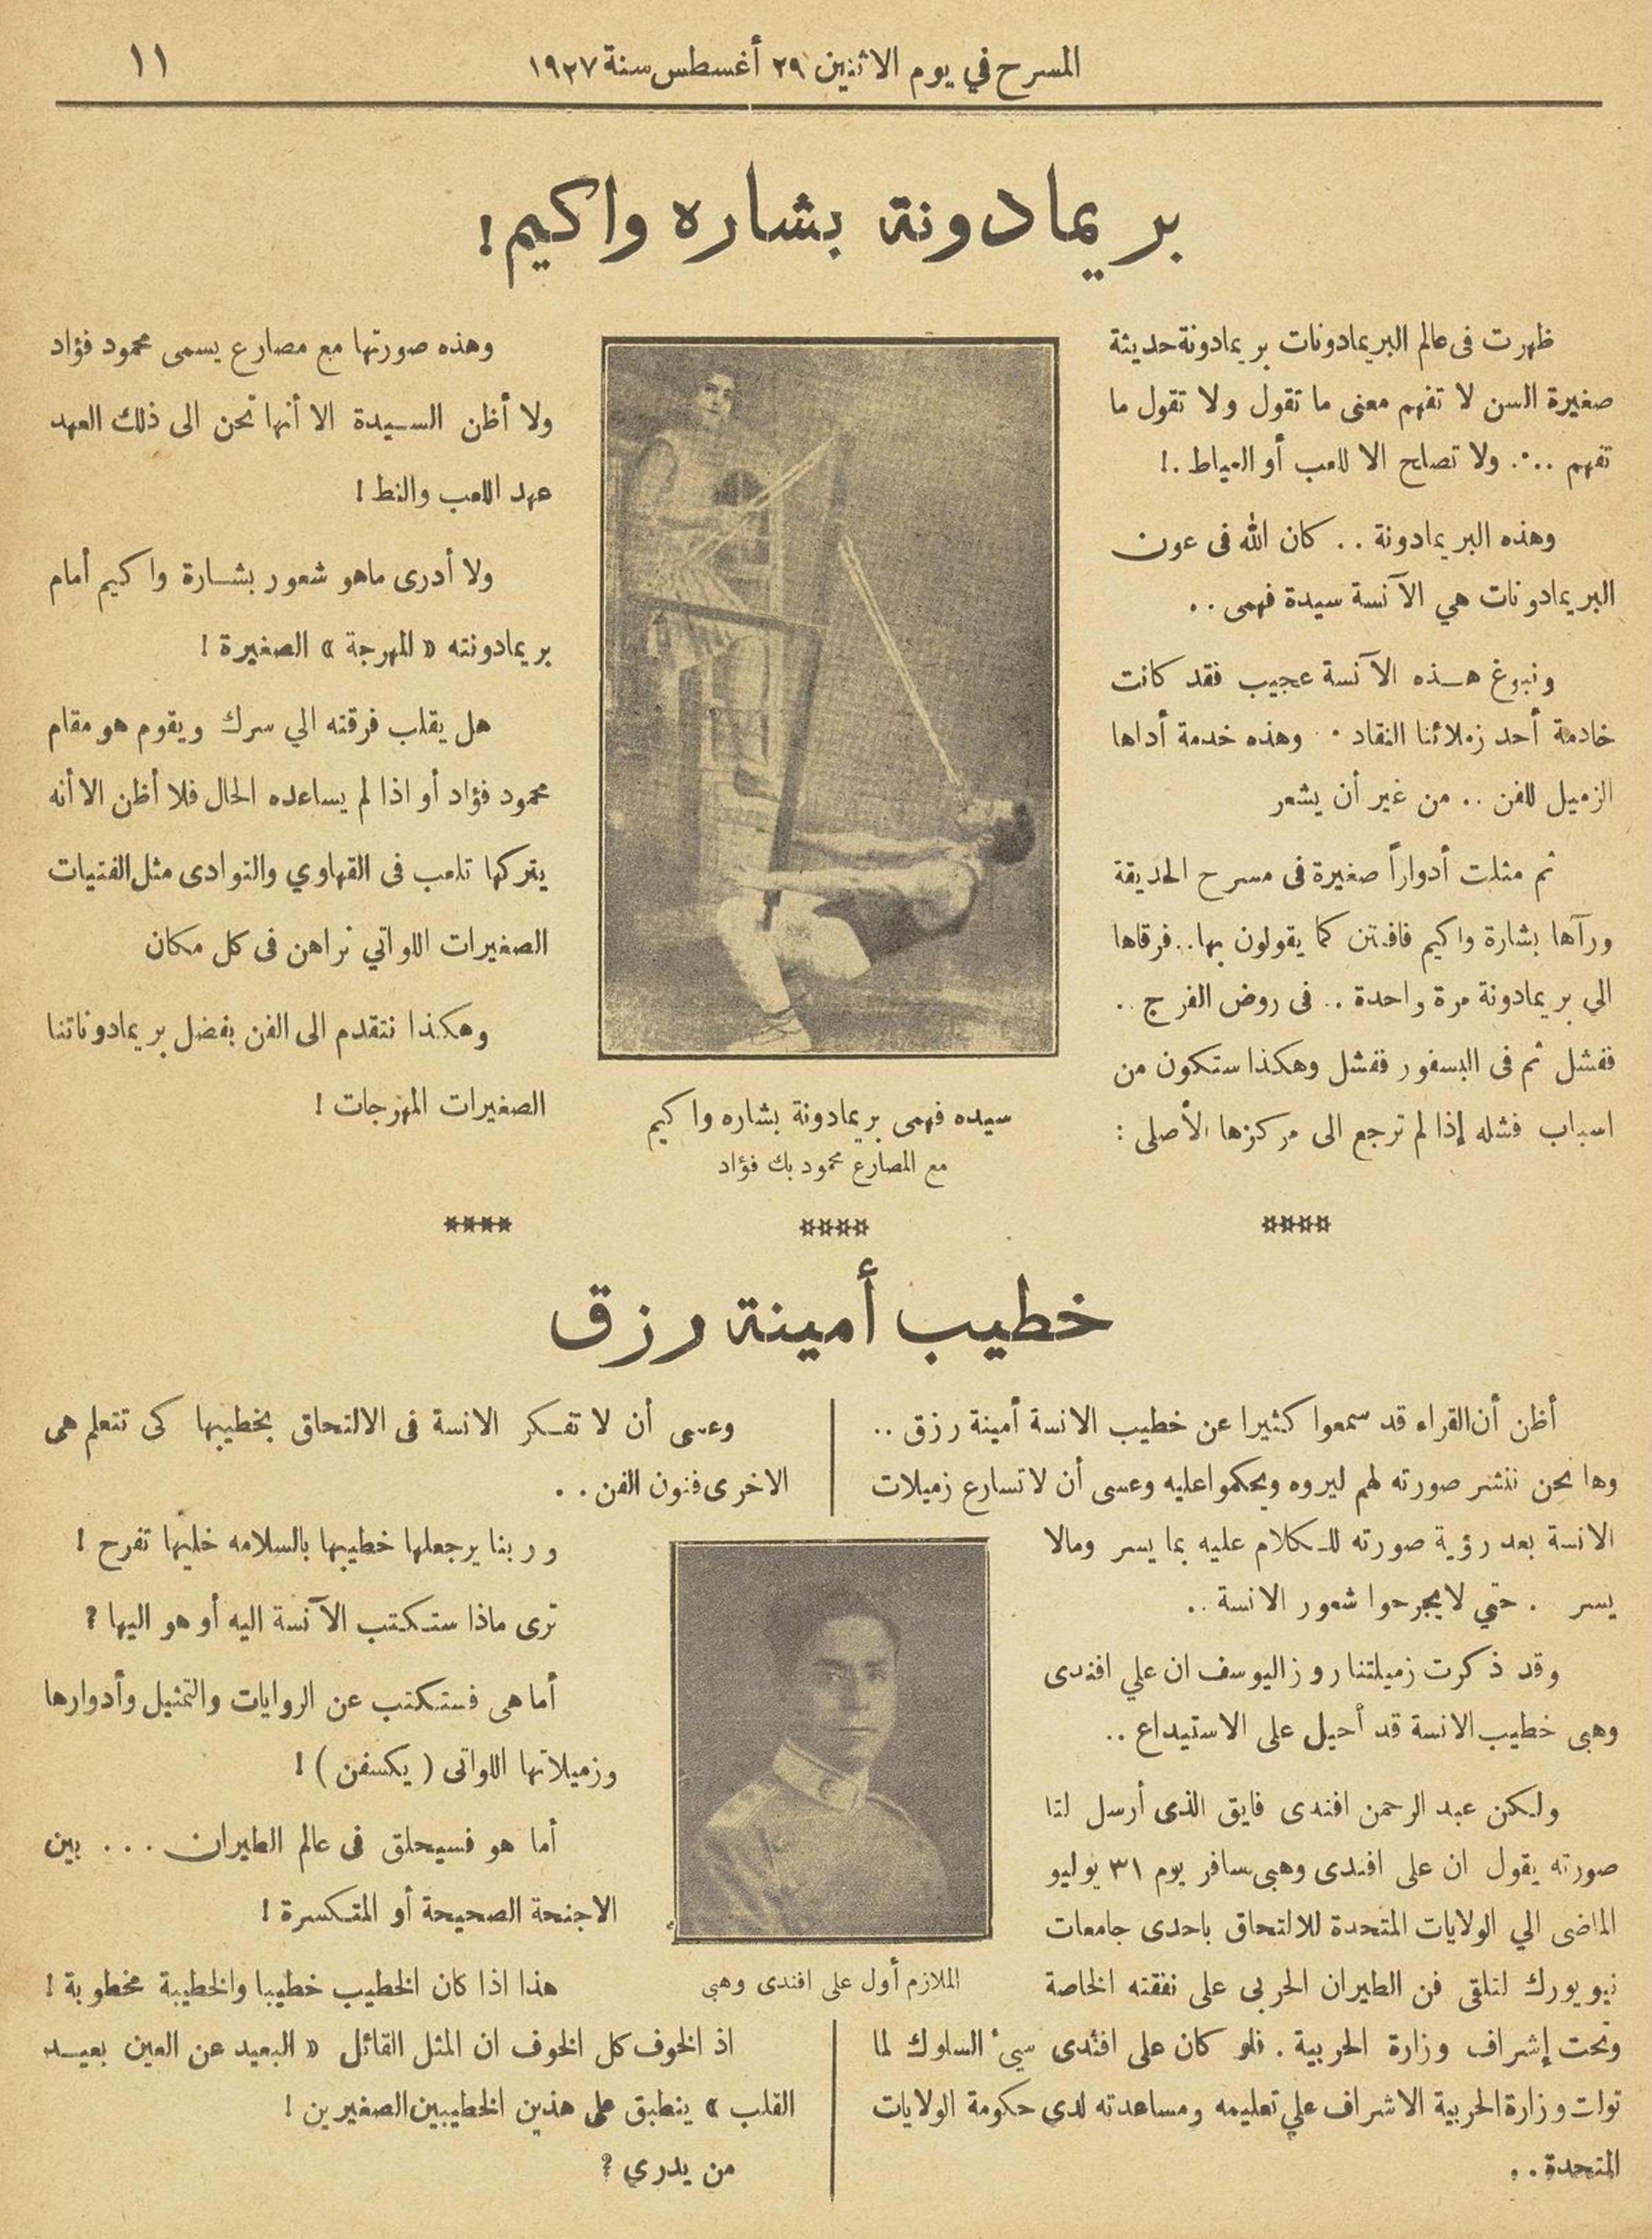 المسرح في يوم الاثنين ٢٩ أغسطس سنة ١٩٢٧
١١
بريمادونة بشاره واكيم!
ظهرت فى عالم البريمادونات بريمادونة حديثة
صغيرة السن لا تفهم معنى ما تقول ولا تقول ما
تفهم ... ولا تصلح الا للعب أو العياط .!
وهذه البريمادونة .. كان الله فى عون
البريمادونات هي الآنسة سيدة فهمى ..
ونبوغ هذه الآنسة عجيب فقد كانت
خادمة أحد زملائنا النقاد . وهذه خدمة أداها
الزميل للفن .. من غير أن يشعر
ثم مثلت أدواراً صغيرة فى مسرح الحديقة
ورآها بشارة واكيم فافتتن كما يقولون بها .. فرقاها
الي بريمادونة مرة واحدة .. فى روض الفرج ..
ففشل ثم فى البسفور ففشل وهكذا ستكون من
اسباب فشله إذا لم ترجع الى مركزها الأصلى :
سيده فهمى بريمادونة بشاره واكيم
مع المصارع محمود بك فؤاد
وهذه صورتها مع مصارع يسمى محمود فؤاد
ولا أظن السيدة الا أنها تحن الى ذلك العهد
عهد اللعب والنط !
ولا أدرى ماهو شعور بشارة واكيم أمام
بريمادونته « المهرجة » الصغيرة !
هل يقلب فرقته الي سرك ويقوم هو مقام
محمود فؤاد أو اذا لم يساعده الحال فلا أظن الا أنه
يتركها تلعب فى القهاوي والنوادى مثل الفتيات
الصغيرات اللواتي نراهن فى كل مكان
وهكذا نتقدم الى الفن بفضل بريمادوناتنا
الصغيرات المهرجات !
****
****
****
خطيب أمينة رزق
أظن أن القراء قد سمعوا كثيرا عن خطيب الانسة أمينة رزق ..
وها نحن ننشر صورته لهم ليروه ويحكموا عليه وعسى أن لا تسارع زميلات
الانسة بعد رؤية صورته للكلام عليه بما يسر ومالا
يسر . حتي لا يجرحوا شعور الانسة ..
وقد ذكرت زميلتنا روز اليوسف ان علي افندى
وهبى خطيب الانسة قد أحيل على الاستيداع ..
ولكن عبد الرحمن افندى فايق الذى أرسل لنا
صورته يقول ان على افندى وهبى سافر يوم ٣١ يوليو
الماضى الي الولايات المتحدة للالتحاق باحدى جامعات
نيويورك لتلقى فن الطيران الحربى على نفقته الخاصة
وتحت إشراف وزارة الحربية . فلو كان على افندى سيء السلوك لما
تولت وزارة الحربية الاشراف علي تعليمه ومساعدته لدي حكومة الولايات
المتحدة ..
الملازم أول على افندى وهبى
وعسى أن لا تفكر الانسة فى الالتحاق بخطيبها كى تتعلم هى
الاخرى فنون الفن ..
وربنا يرجعلها خطيبها بالسلامه خليها تفرح !
ترى ماذا ستكتب الآنسة اليه أو هو اليها ؟
أما هى فستكتب عن الروايات والتمثيل وأدوارها
وزميلاتها اللواتى ( يكسفن ) !
أما هو فسيحلق فى عالم الطيران ... بين
الاجنحة الصحيحة أو المتكسرة !
هذا اذا كان الخطيب خطيبا والخطيبة مخطوبة !
اذ الخوف كل الخوف ان المثل القائل « البعيد عن العين بعيد
القلب » ينطبق على هذين الخطيبين الصغيرين !
من يدري ؟